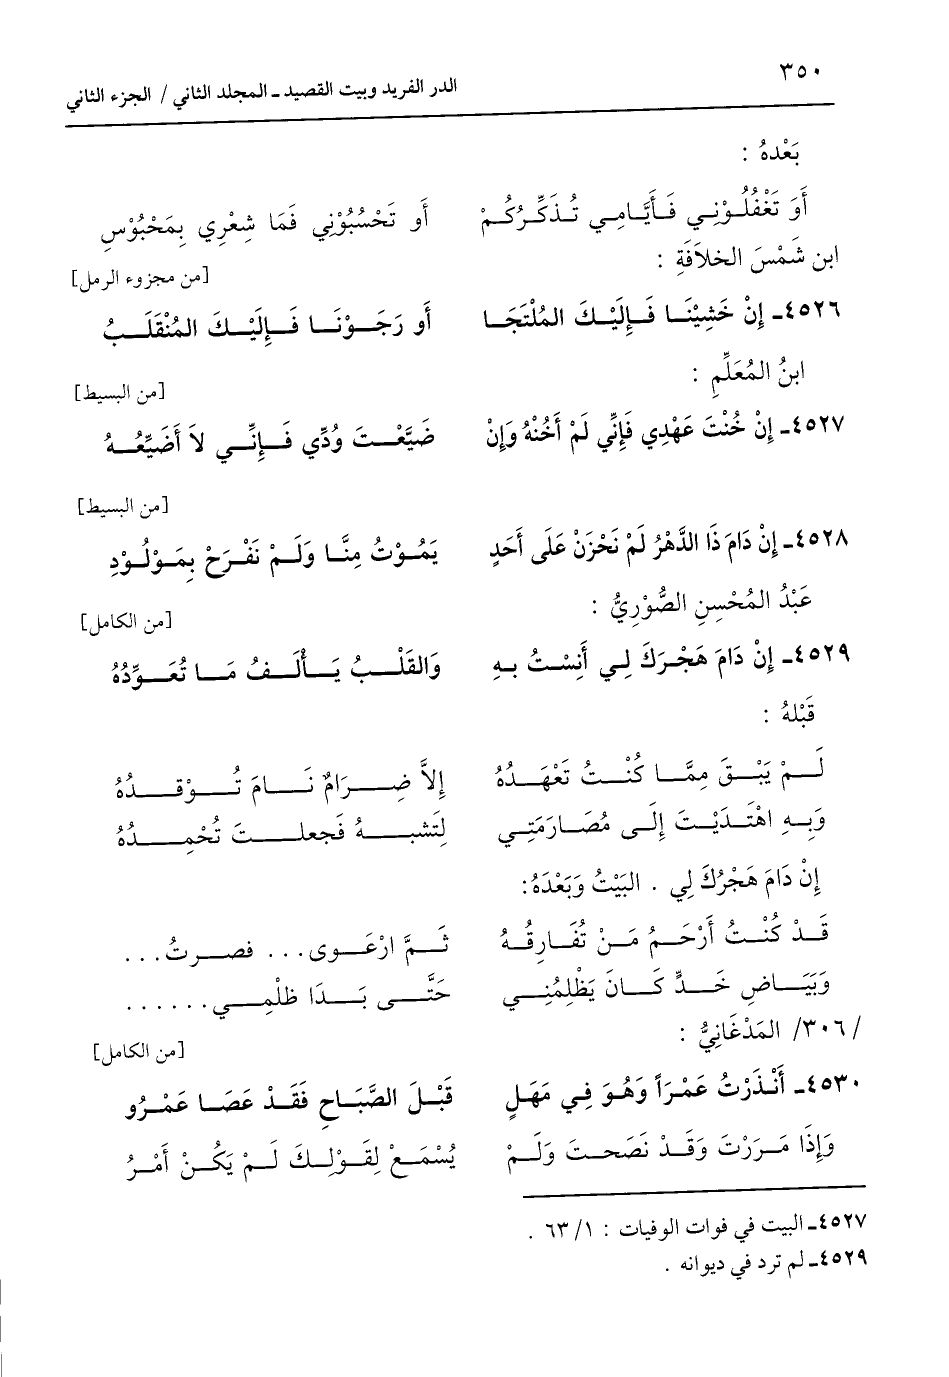 ٣٥٠
الدر الفريد وبيت القصيد ـ المجلد الثاني / الجزء الثاني
بَعْدهُ :
أَوَ تَغْفُلُوْنِي فَأَيَّامِي تُذَكِّرُكُمْ أَو تَحْسُبُوْنِي فَمَا شِعْرِي بِمَحْبُوْسِ
ابن شَمْسَ الخلاَفَةِ :
[من مجزوء الرمل]
٤٥٢٦ـ إِنْ خَشِيْنَا فَإِلَيْكَ المُلْتَجَا أَو رَجَوْنَا فَإِلَيْكَ المُنْقَلَبُ
ابنُ المُعَلِّمِ :
[من البسيط]
٤٥٢٧ـ إِنْ خُنْتَ عَهْدِي فَإِنِّي لَمْ أَخُنْهُ وَإِنْ ضَيَّعْتَ وُدِّي فَإِنِّي لاَ أَضَيِّعُهُ
[من البسيط]
٤٥٢٨ـ إِنْ دَامَ ذَا الدَّهْرُ لَمْ نَحْزَنْ عَلَى أَحَدٍ يَمُوْتُ مِنَّا وَلَمْ نَفْرَحْ بِمَوْلُوْدِ
عَبْدُ المُحْسِنِ الصُّوْرِيُّ :
[من الكامل]
٤٥٢٩ـ إِنْ دَامَ هَجْرَكَ لِي أَنِسْتُ بهِ وَالقَلْبُ يَأْلَفُ مَا تُعَوِّدُهُ
قَبْلهُ :
لَمْ يَبْقَ مِمَّا كُنْتُ تَعْهَدُهُ إِلاَّ ضِرَامٌ نَامَ تُوْقدُهُ
وَبِهِ اهْتَدَيْتَ إِلَى مُصَارَمَتِي لِتَشبهُ فَجعلتَ تُخْمِدُهُ
إِنْ دَامَ هَجْرُكَ لِي . البَيْتُ وَبَعْدَهُ:
قَدْ كُنْتُ أَرْحَمُ مَنْ تُفَارِقُهُ ثَمَّ ارْعَوى... فصرتُ...
وَبَيَاضِ خَدٍّ كَانَ يَظْلِمُنِي حَتَّى بَدَا ظلْمِي......
/٣٠٦/ المَدْغَانِيُّ :
[من الكامل]
٤٥٣٠ـ أَنْذَرْتُ عَمْرَاً وَهُوَ فِي مَهَلٍ قَبْلَ الصَّبَاحِ فَقَدْ عَصَا عَمْرُو
وَإِذَا مَرَرْتَ وَقَدْ نَصَحتَ وَلَمْ يُسْمَعْ لِقَوْلِكَ لَمْ يَكُنْ أَمْرُ
٤٥٢٧ـ البيت في فوات الوفيات : ١/ ٦٣ .
٤٥٢٩ـ لم ترد في ديوانه .